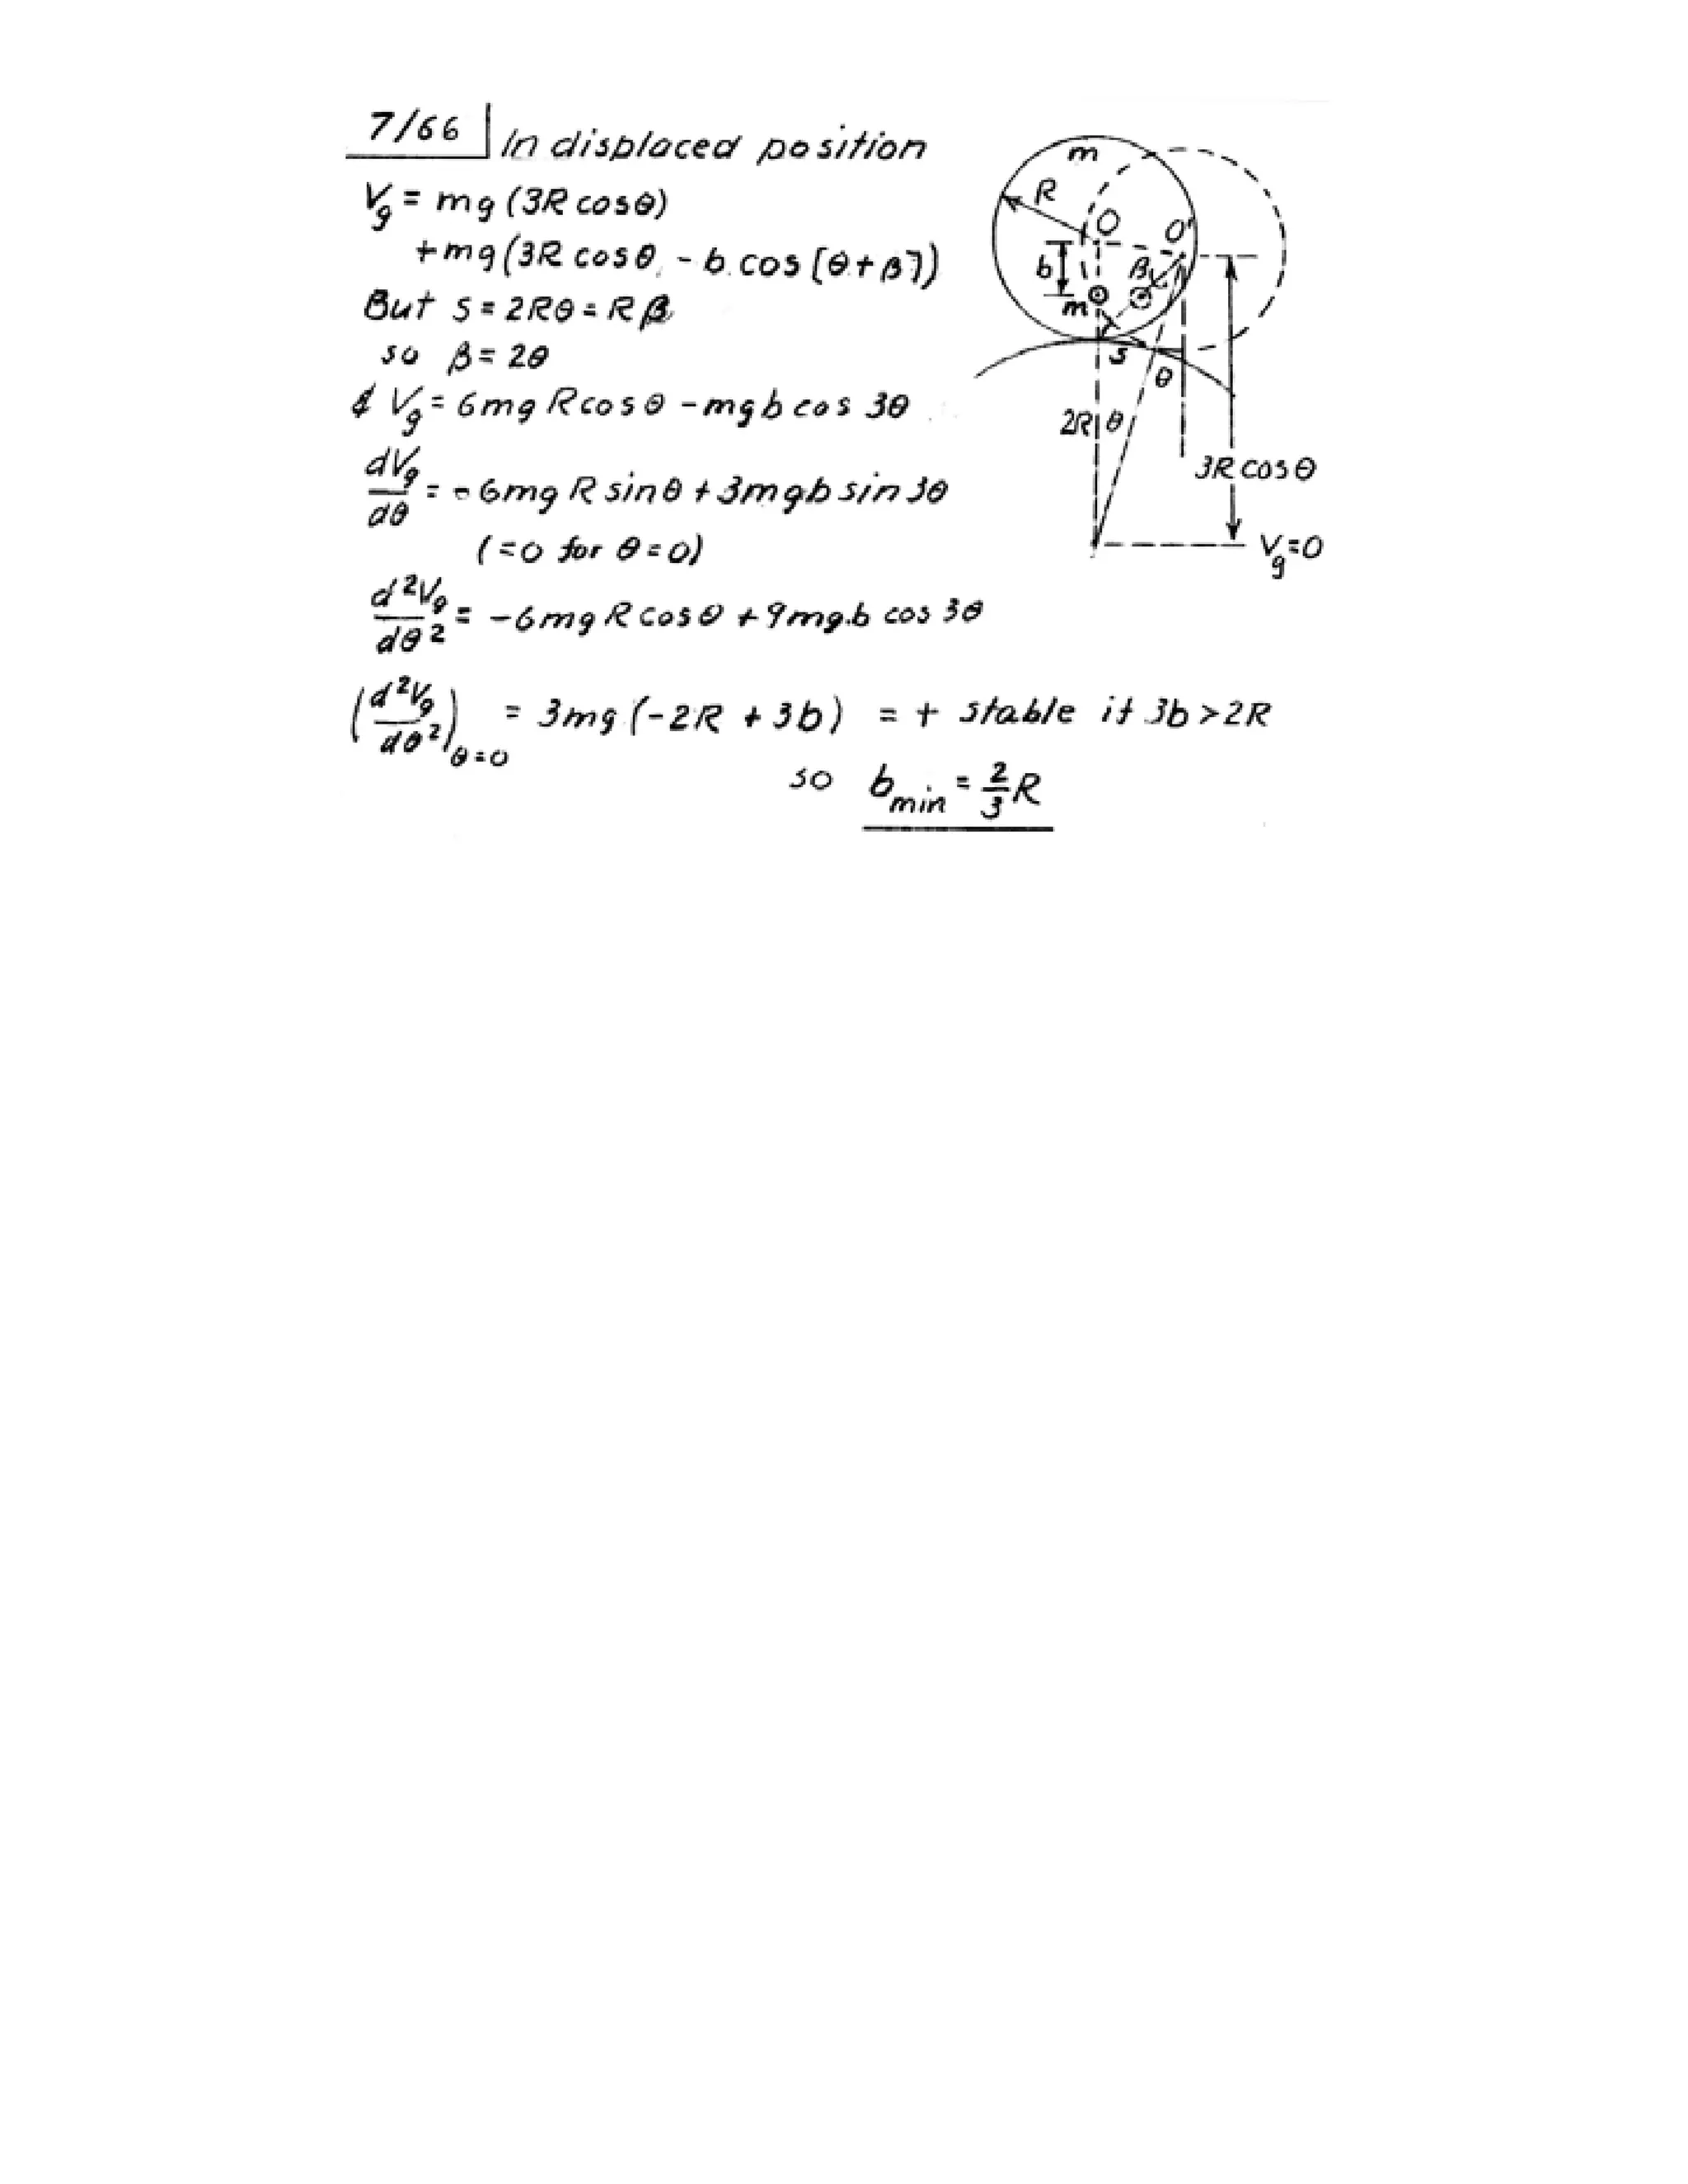 7/66 In displaced position
Vg = mg (3R cosθ)
+ mg (3R cosθ - b cos [θ + β])
But s = 2Rθ = Rβ
so β = 2θ
& Vg = 6mg R cosθ - mgb cos 3θ
dVg/dθ = -6mg R sinθ + 3mgb sin 3θ
(= 0 for θ = 0)
d²Vg/dθ² = -6mg R cosθ + 9mgb cos 3θ
(d²Vg/dθ²)θ=0 = 3mg (-2R + 3b) = + stable if 3b > 2R
so bmin = 2/3 R
m
R
O
O'
b
β
m
s
θ
2R
θ
3R cosθ
Vg = 0